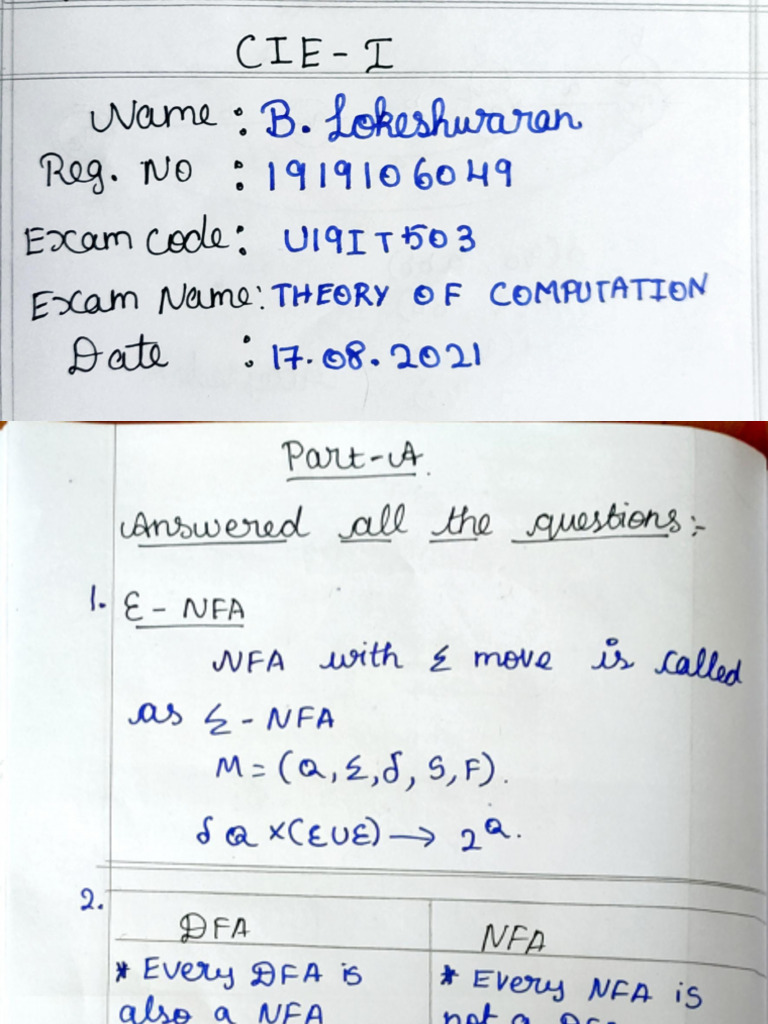 CIE - I
Name : B. Lokeshwaran
Reg. No : 1919106049
Exam code: U19IT503
Exam Name: THEORY OF COMPUTATION
Date : 17.08.2021
Part-A.
Answered all the questions:-
1. Ɛ - NFA
NFA with Σ move is called
as Σ - NFA
M = (Q, Σ, δ, S, F).
δ Q x (Ɛ U Ɛ) → 2^Q.
2.
DFA NFA
* Every DFA is * Every NFA is
also a NFA not a DFA